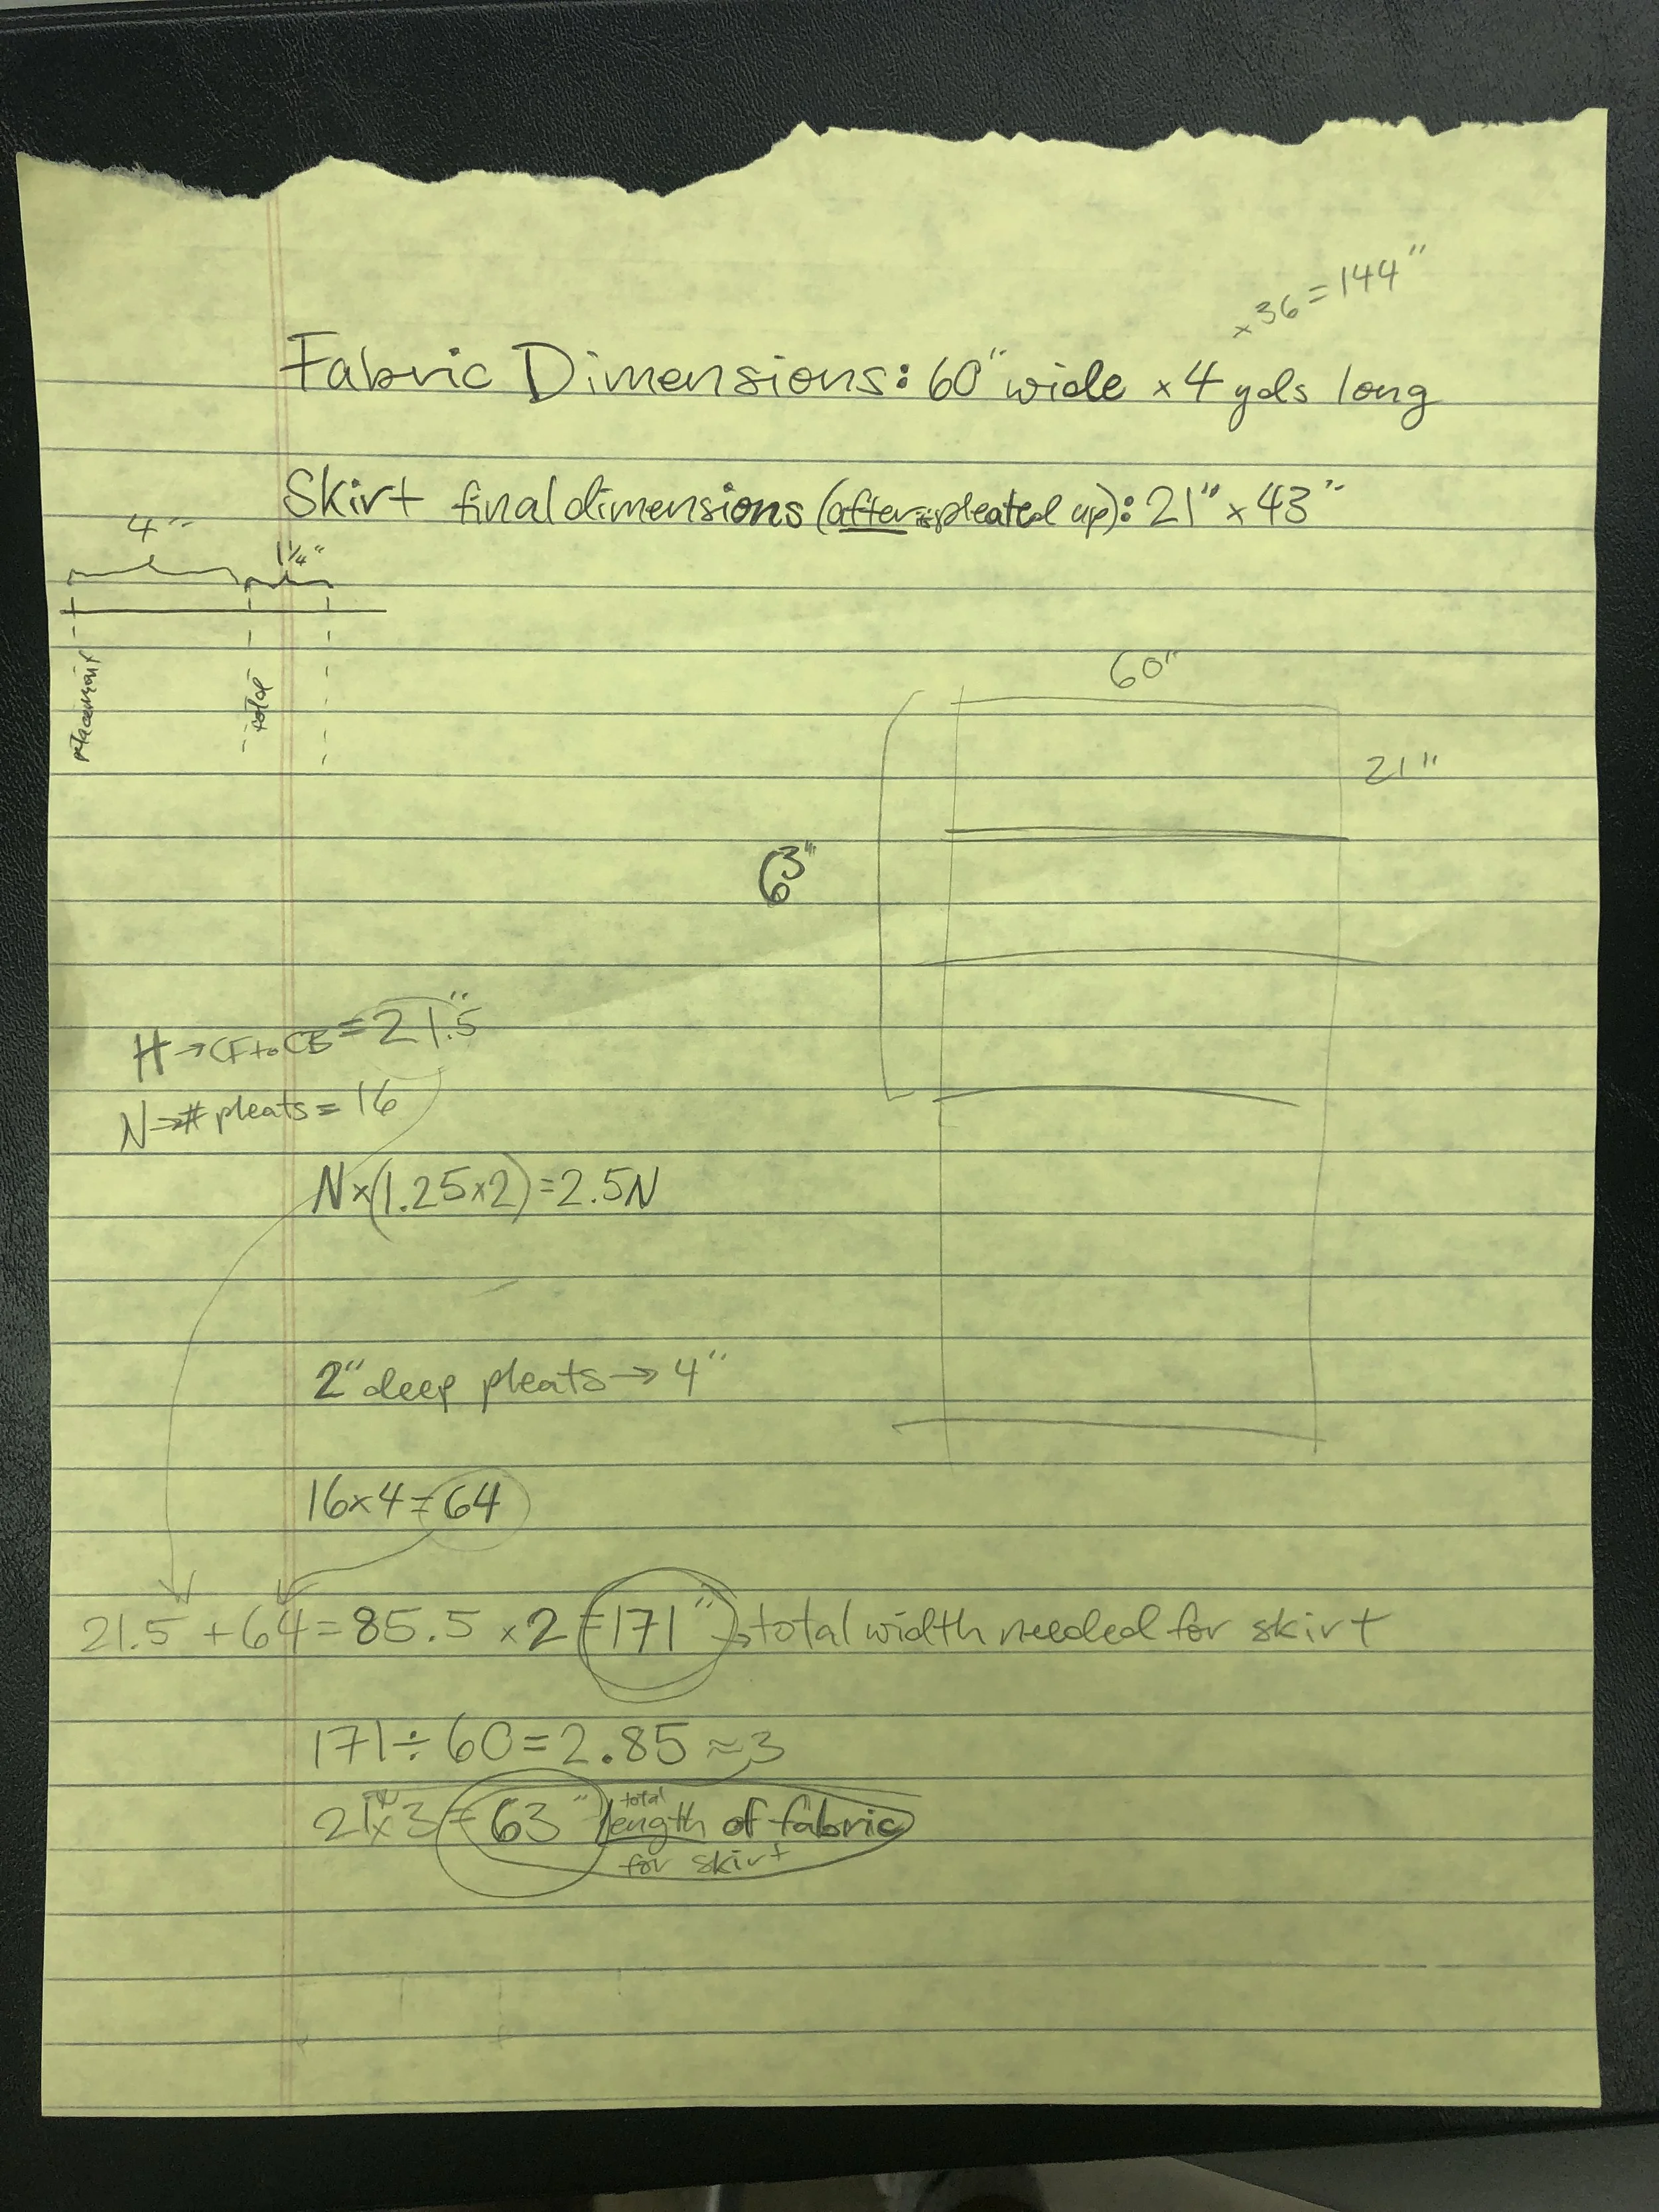 x36=144"
Fabric Dimensions: 60" wide x 4 yds long
Skirt final dimensions (after pleated up): 21" x 43"
4"
1¼"
placement
fold
60"
21"
63"
H→CF to CB=21.5"
N→# pleats=16
Nx(1.25x2)=2.5N
2" deep pleats→4"
16x4=64
21.5+64=85.5 x2=171"→total width needed for skirt
171÷60=2.85≈3
21"x3=63" total length of fabric
for skirt